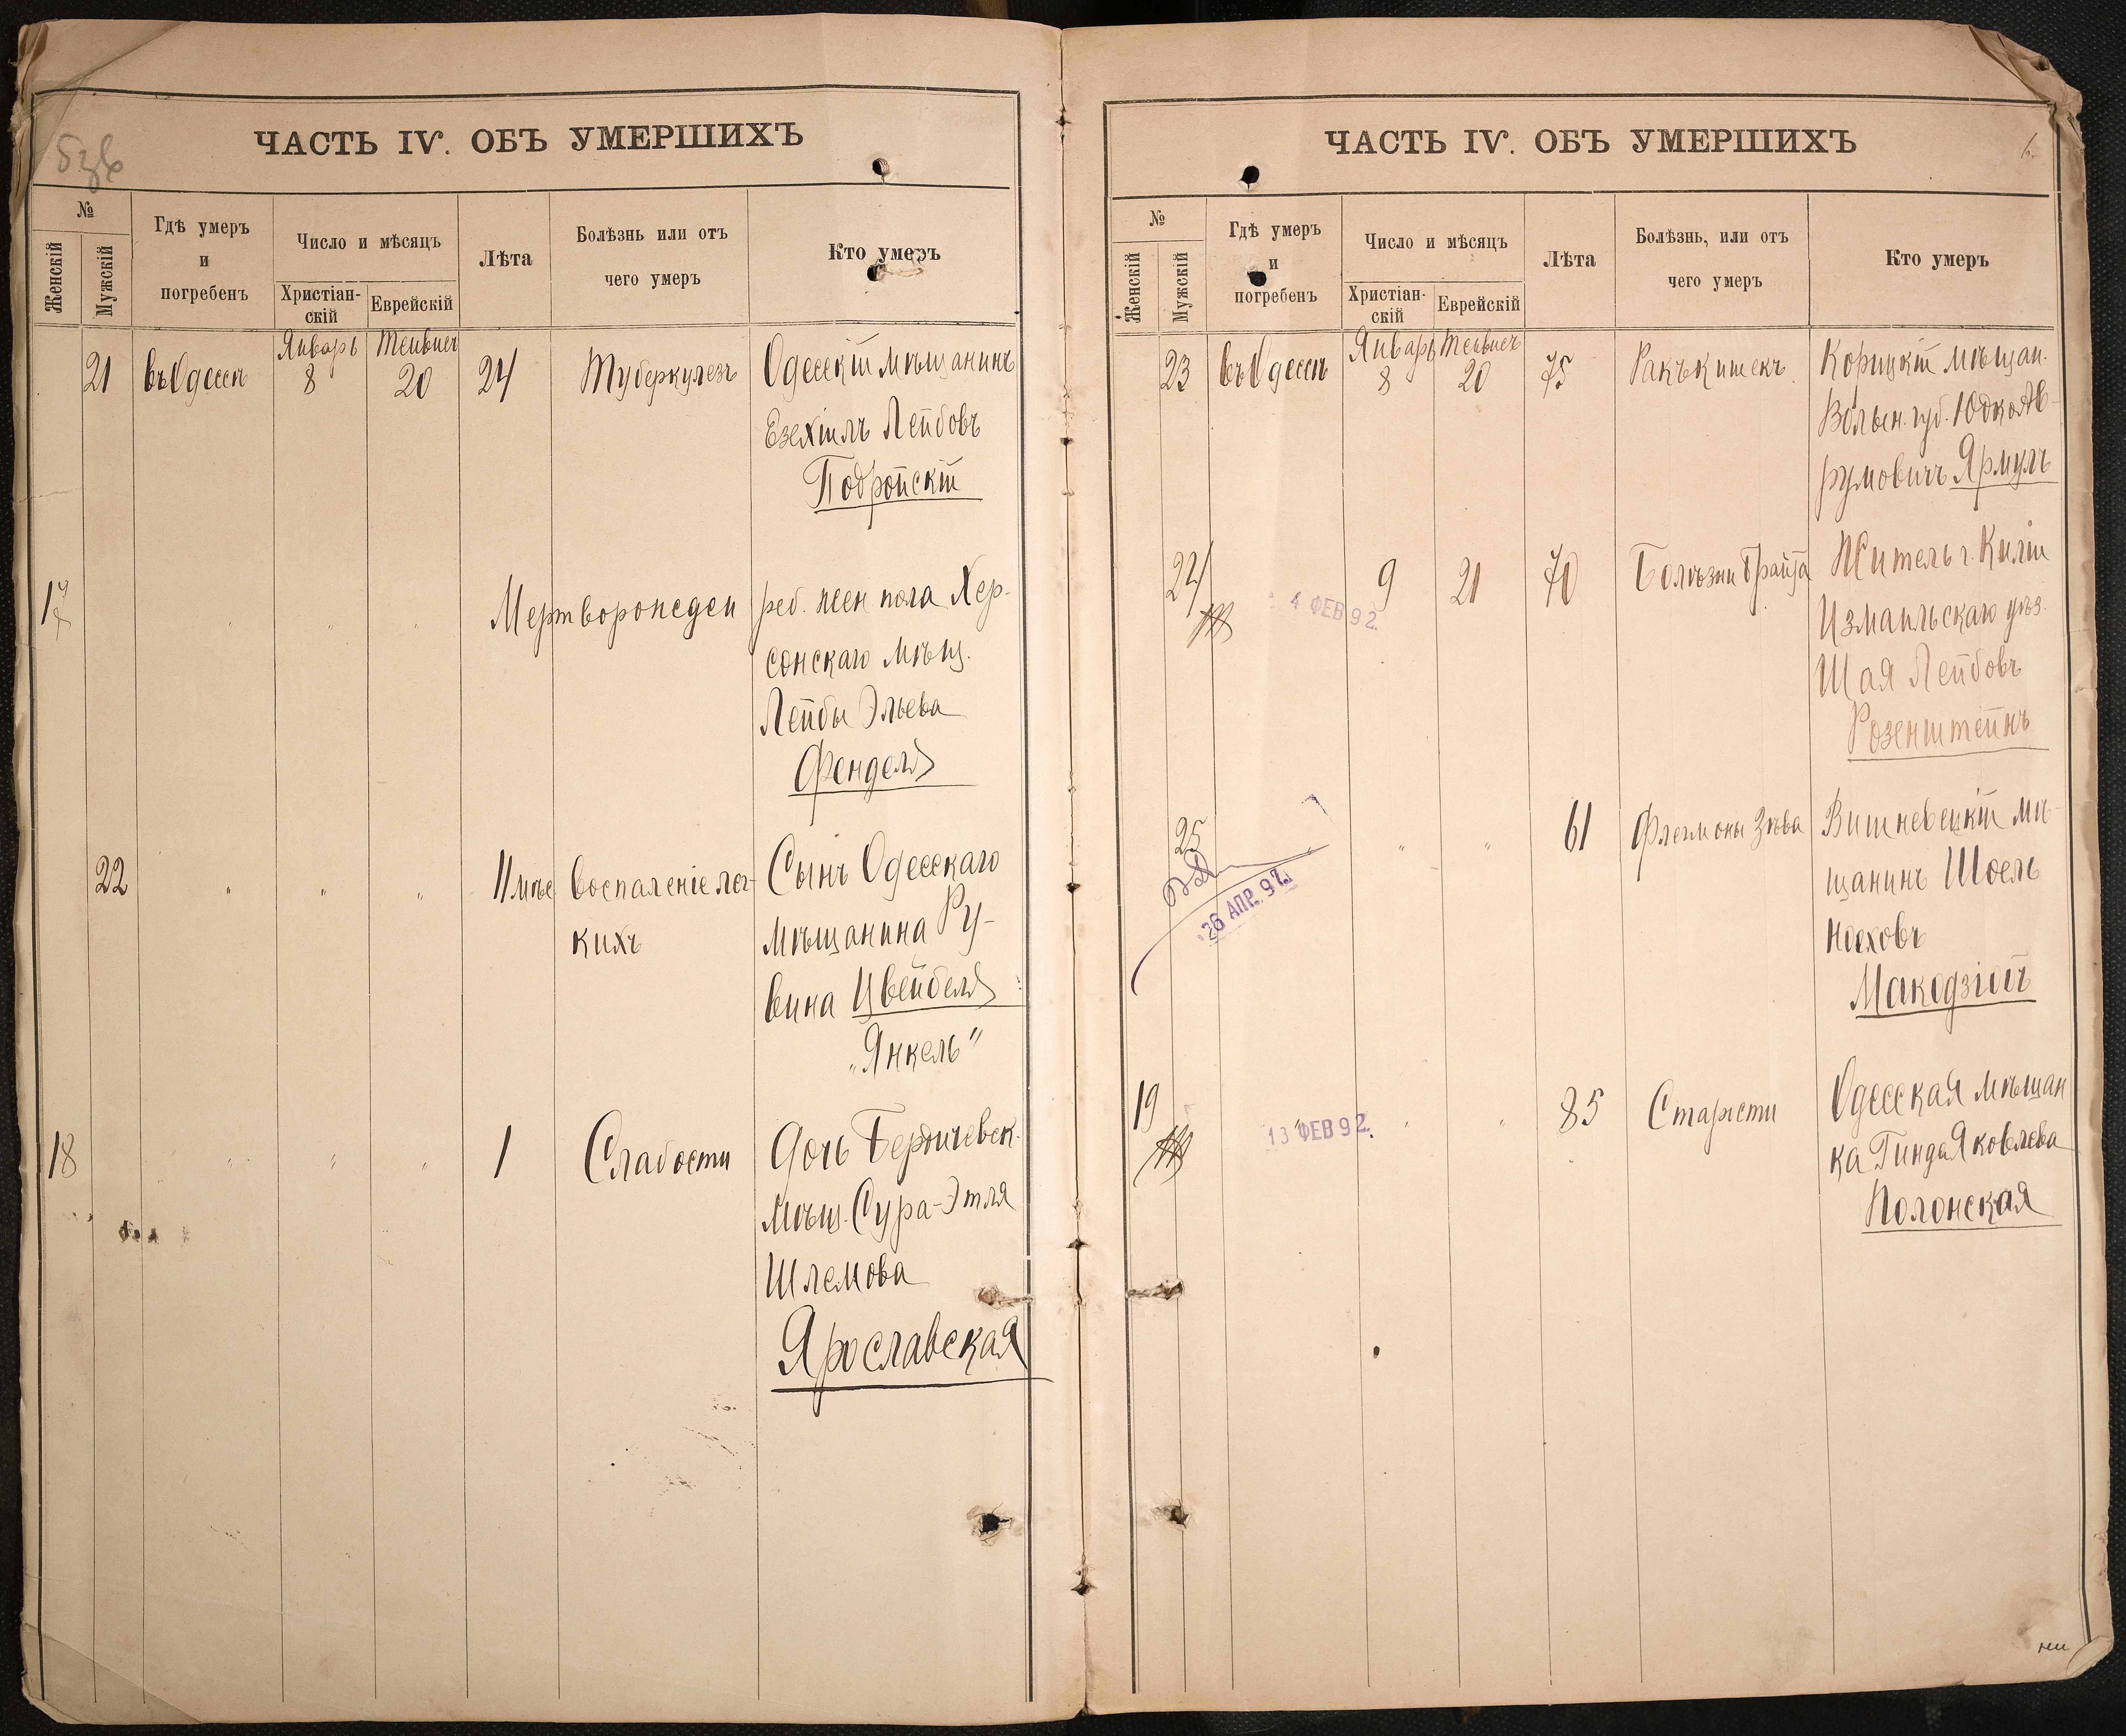 ЧАСТЬ IV. ОБЪ УМЕРШИХЪ
№
Женскій
Мужскій
Гдѣ умеръ
и
погребенъ
Число и мѣсяцъ
Христіан-
скій
Еврейскій
Лѣта
Болѣзнь или отъ
чего умеръ
Кто умеръ
Январь Тейвисъ
21 въ Одессѣ 8 20 24 Туберкулезъ Одесскій мѣщанинъ
Езехіиль Лейбовъ
Подройскій
17 " " " Мертворожден реб. жен пола Хер-
сонскаго мѣщ.
Лейбы Эльева
Фенделя
22 " " " 11 мѣс воспаленіе лег- Сынъ Одесскаго
кихъ мѣщанина Ру-
вина Цвейбеля
"Янкель"
18 " " " 1 Слабости Дочь Бердичевск.
мѣщ. Сура-Этля
Шлемова
Ярославская
ЧАСТЬ IV. ОБЪ УМЕРШИХЪ
6.
№
Женскій
Мужскій
Гдѣ умеръ
и
погребенъ
Число и мѣсяцъ
Христіан-
скій
Еврейскій
Лѣта
Болѣзнь, или отъ
чего умеръ
Кто умеръ
Январь Тейвисъ
23 въ Одессѣ 8 20 75 Ракъ кишекъ Корицкій мѣщан.
Волын. губ. Юдко Аб-
румовичъ Ярмуль
24 9 21 70 Болѣзни Брайта Житель г. Киліи
4 ФЕВ 92. Измаильскаго уѣз.
Шая Лейбовъ
Розенштейнъ
25 " " " 61 Флегмоны Зѣва Вишневецкій мѣ-
щанинъ Шоель
26 АПР. 92 Ноеховъ
Макодзіой
19 13 ФЕВ 92. " " 85 Старости Одесская мѣщан
ка Гинда Яковлева
Полонская